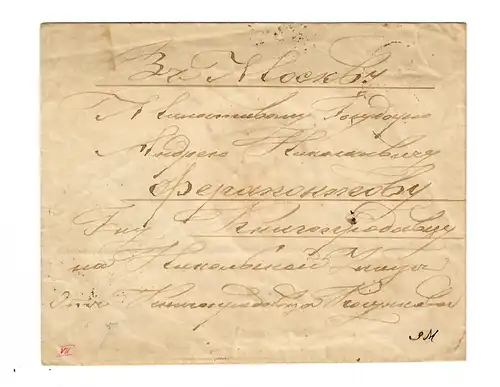 Въ Москву
Милостивому Государю
Андрею Николаевичу
Ферапонтову
Гну Книгопродавцу
на Никольской Улице
Книгопродавца
VII
ЭМ